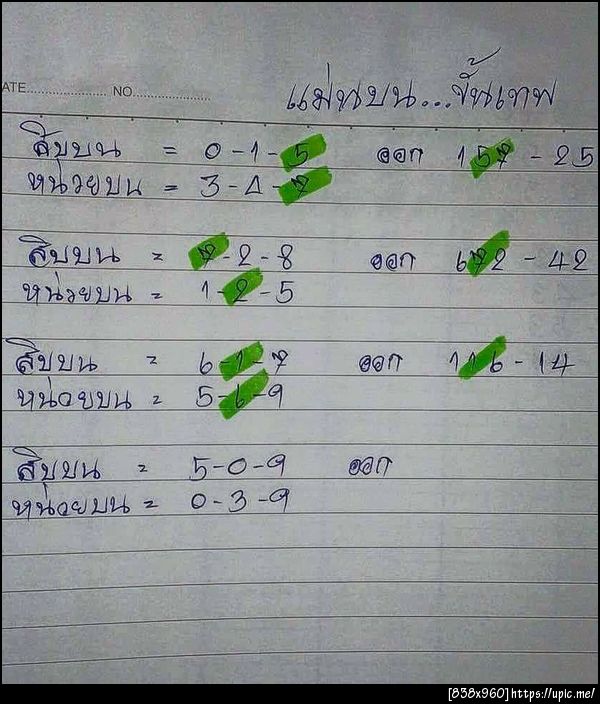 ATE.................... NO....................
แม่นบน...ขั้นเทพ
สิบบน = 0-1-5 ออก 157-25
หน่วยบน = 3-4-7
สิบบน = 7-2-8 ออก 672-42
หน่วยบน = 1-2-5
สิบบน = 6-1-7 ออก 116-14
หน่วยบน = 5-6-9
สิบบน = 5-0-9 ออก
หน่วยบน = 0-3-9
[838x960] https://upic.me/